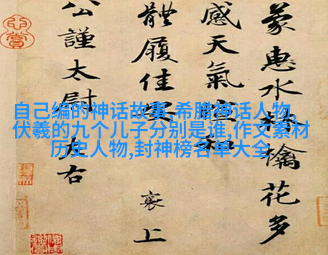 自己编的神话故事,希腊神话人物,
伏羲的九个儿子分别是谁,作文素材
历史人物,封神榜名单大全
蒙惠水檎花多
感天氣和
體履佳安
襄上
公謹太尉左右